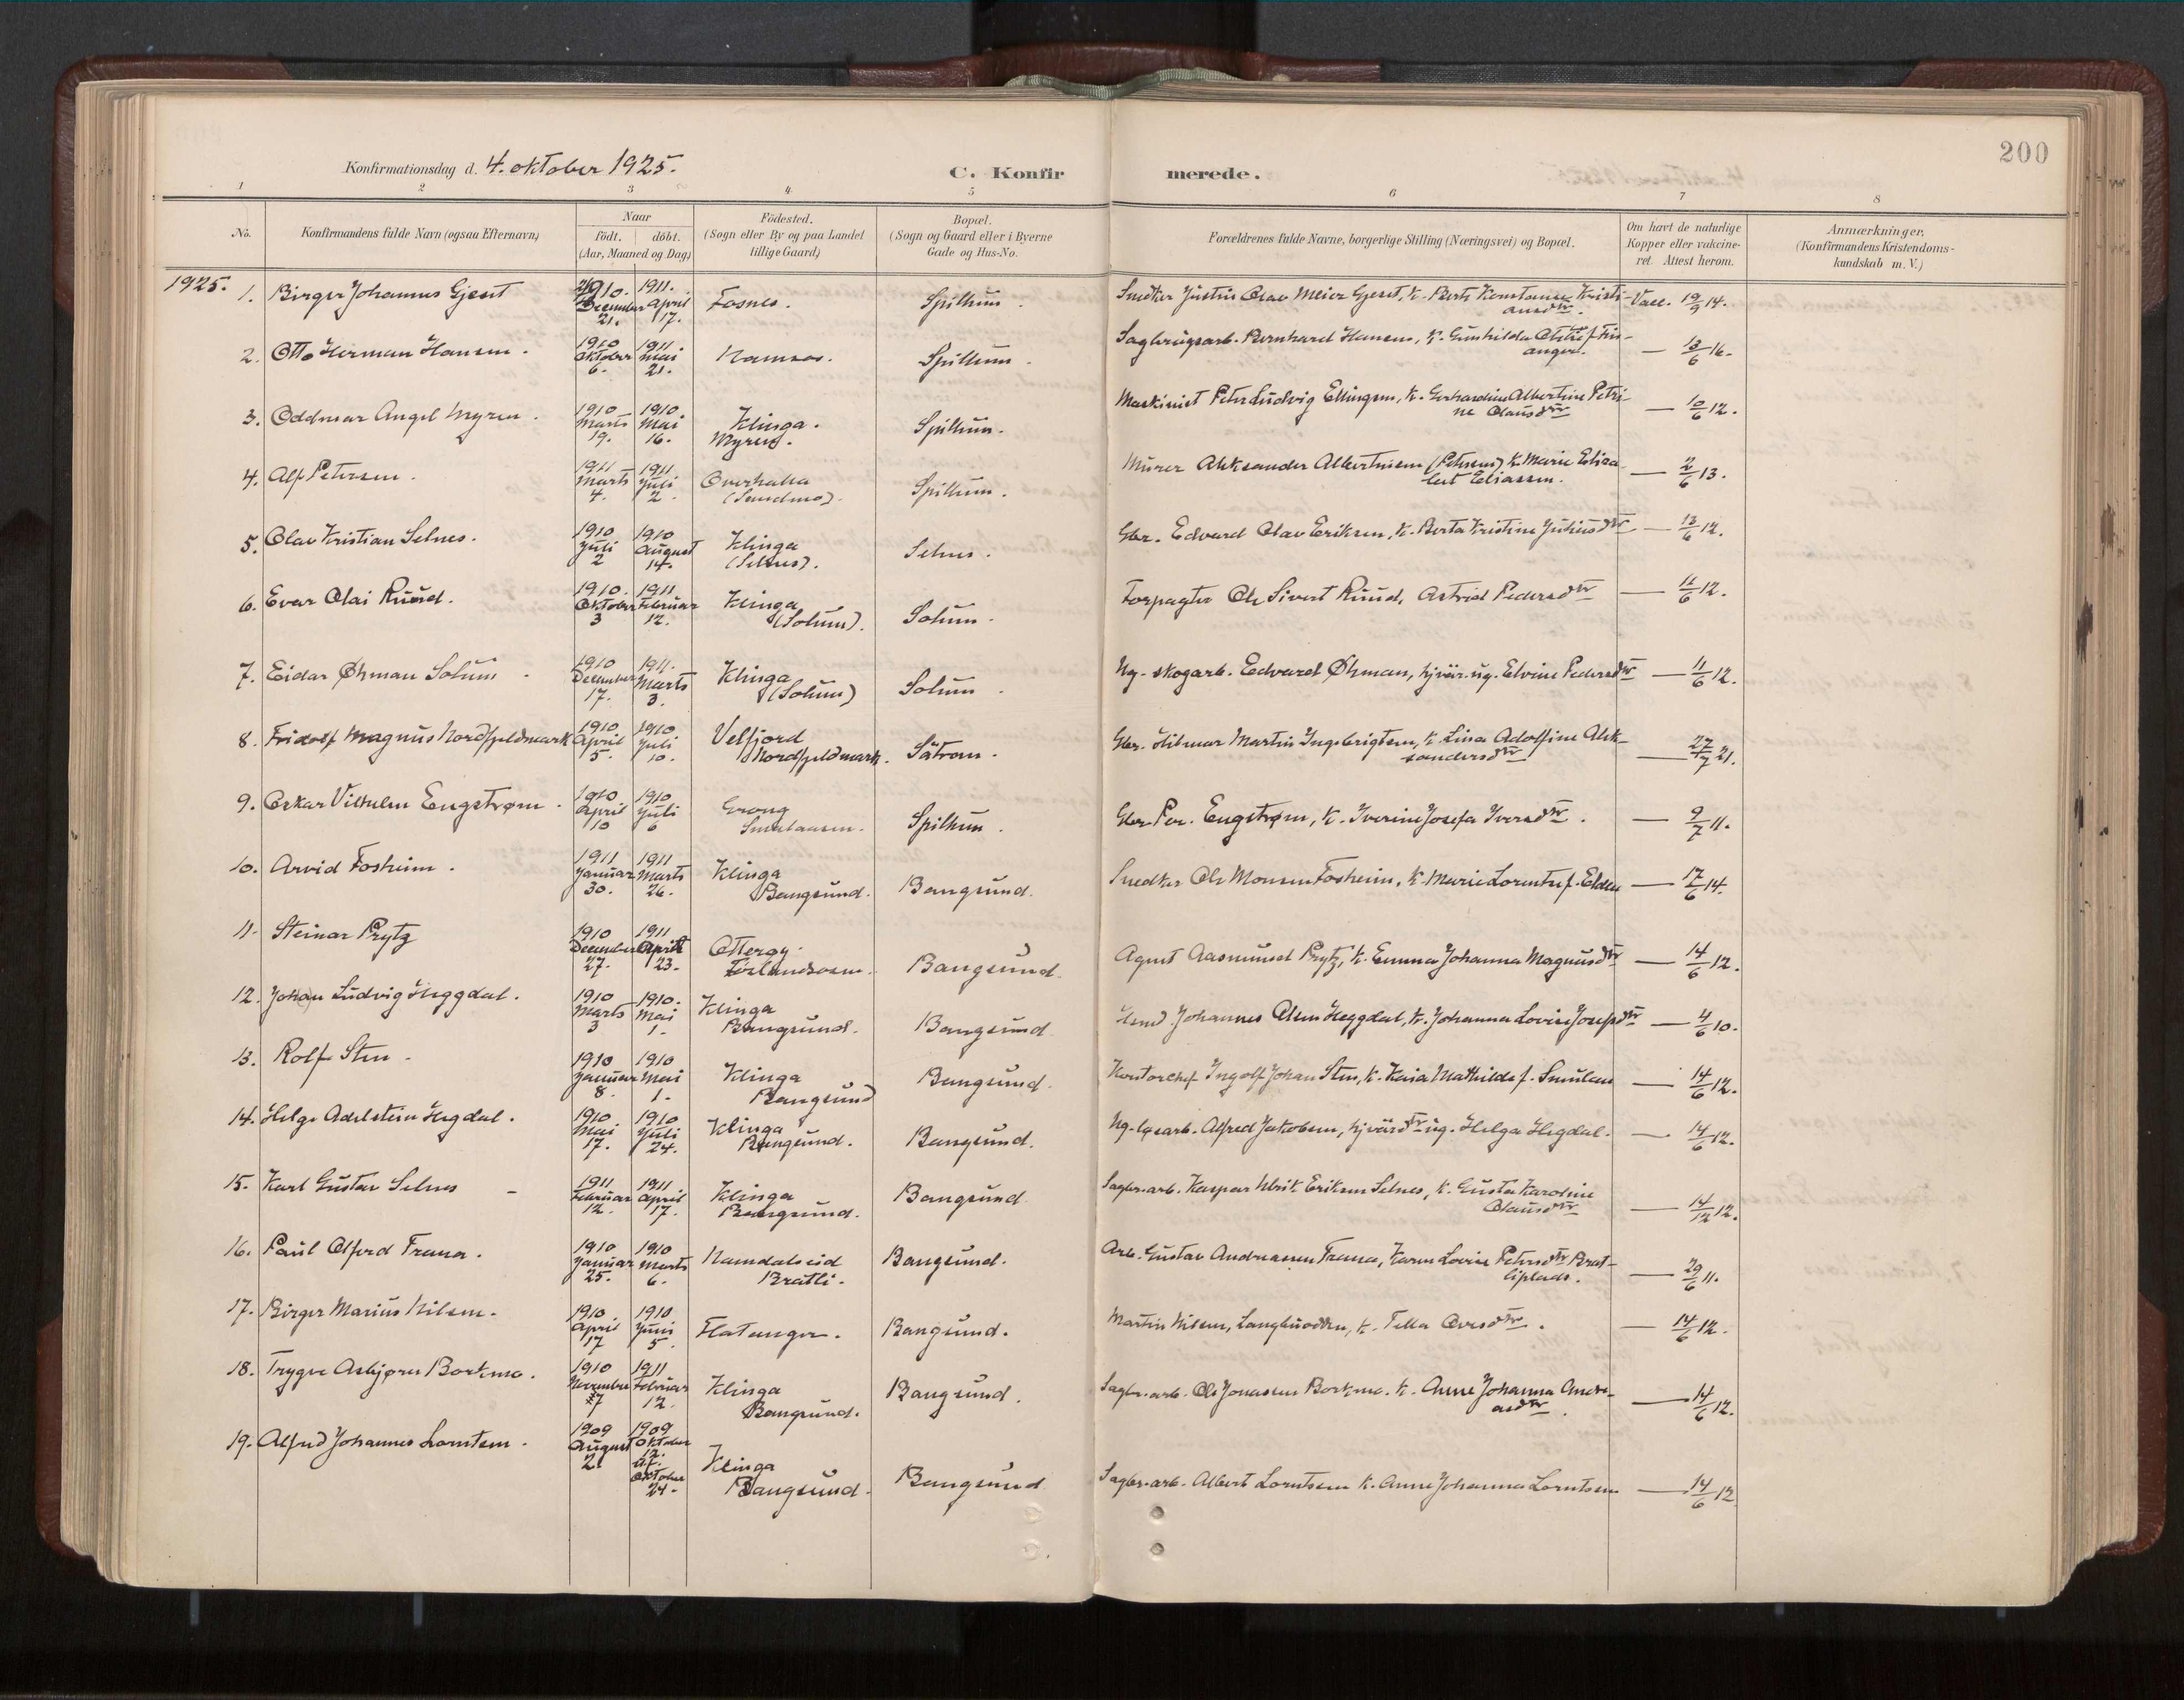 200
Konfirmationsdag d. 4. oktober 1925.
C. Konfirmerede.
1 2 3 4 5 6 7 8
No.
Konfirmandens fulde Navn (ogsaa Efternavn)
Naar
födt. döbt.
(Aar, Maaned og Dag)
Födested.
(Sogn eller By og paa Landet
tillige Gaard)
Bopæl.
(Sogn og Gaard eller i Byerne
Gade og Hus-No.
Forældrenes fulde Navne, borgerlige Stilling (Næringsvei) og Bopæl.
Om havt de naturlige
Kopper eller vakcine-
ret. Attest herom.
Anmærkninger.
(Konfirmandens Kristendoms-
kundskab m. V.)
1925. 1. Birger Johannes Gjeset 1910. December 21. 1911. April 17. Fosnes. Spillum. Snedker Justin Olav Meier Gjeset, K. Konstanse Kristiansdtr. Vacc. 19/9 14.
2. Otto Herman Hansen. 1910 Oktober 6. 1911 Mai 21. Namsos. Spillum. Sagbrugsarb. Bernhard Hansen, K. Gunhilda f. Finanger. — 13/6 16.
3. Oddmar Angel Myren. 1910 Marts 19. 1910 Mai 16. Klinga. Myren. Spillum. Maskinist Peter Ludvig Ellingsen, K. Gerhardine Albertine Petrine Olausdtr — 10/6 12.
4. Alf Petersen. 1911 Marts 4. 1911. Juli 2. Overhalla (Sundmo). Spillum. Murer Aleksander Albertsen (Petersen) K. Marie Elisabet Eliassen. — 2/6 13.
5. Olav Kristian Selnes. 1910 Juli 2 1910 August 14. Klinga (Selnes). Selnes. Gbr. Edvard Olav Eriksen, K. Berta Kristine Juliusdtr — 13/6 12.
6. Evar Olai Ruud. 1910. Oktober 3 1911 Februar 12. Klinga (Solum). Solum. Forpagter Ole Sivert Ruud, Astrid Pedersdtr — 11/6 12.
7. Eidar Øhman Solum. 1910 December 17. 1911. Marts 3. Klinga (Solum) Solum. Ug. skogarb. Edvard Øhman, hjvær. ug. Elvine Pedersdtr — 11/6 12.
8. Fridolf Magnus Nordfjeldmark 1910 April 5. 1910 Juli 10. Velfjord Nordfjeldmark. Sätran. Gbr. Hilmar Martin Ingebrigtsen, K. Lina Adolfine Aleksandersdtr — 27/7 21.
9. Oskar Vilhelm Engstrøm. 1910 April 10 1910 Juli 6 Grong Spillum. Gbr. Per. Engstrøm, K. Iverine Josefa Iversdtr. — 9/7 11.
10. Arvid Fosheim. 1911 Januar 30. 1911 Marts 26. Klinga Bangsund. Bangsund. Snedker Ole Monsen Fosheim, K. Marie Lorentse f. Elden — 17/6 14.
11. Steinar Prytz 1910 December 27. 1911 April 23. Otterøy. Bangsund. Agent Aasmund Prytz, K. Emma Johanna Magnusdtr — 14/6 12.
12. Johan Ludvig Heggdal. 1910 Marts 3 1910. Mai 1. Klinga Bangsund. Bangsund Johannes Olsen Heggdal, K. Johanna Lovise Josefsdtr — 4/6 10.
13. Rolf Sten. 1910 Januar 8. 1910 Mai 1. Klinga Bangsund Bangsund. Kontorchef Ingolf Johan Sten, K. Kaia Mathilde f. — 14/6 12.
14. Helge Adelstein Hegdal. 1910 Mai 17. 1910 Juli 24. Klinga Bangsund. Bangsund. Ug. Alfred Jakobsen, hjværdtr ug. Helga Hegdal. — 14/6 12.
15. Karl Gustav Selnes 1911 Februar 12. 1911 April 17. Klinga Bangsund. Bangsund. Sagbr.arb. Kaspar Ulrik Eriksen Selnes, K. Gusta Karoline Olausdtr — 14/12 12.
16. Paul Alfred Trana. 1910 Januar 25. 1910 Marts 6. Namdalseid Bratli. Bangsund. Arb. Gustav Andreassen Trana, Karen Lovise Petersdtr Bratliplads. — 29/6 11.
17. Birger Marius Nilsen. 1910 April 17 1910 Juni 5. Flatanger. Bangsund. Martin Nilsen, K. Tella Ovesdtr. — 14/6 12.
18. Trygve Asbjørn Borkmo. 1910 November 7 1911 Februar 12. Klinga Bangsund. Bangsund. Sagbr.arb. Ole Jonassen Borkmo. K. Anne Johanna Andreasdtr. — 14/6 12.
19. Alfred Johannes Lorntsen. 1909 August 21 1909 Oktober 12. Oktober 24. Klinga Bangsund. Bangsund Sagbr.arb. Albert Lorntsen K. Anne Johanna Lorntsen — 14/6 12